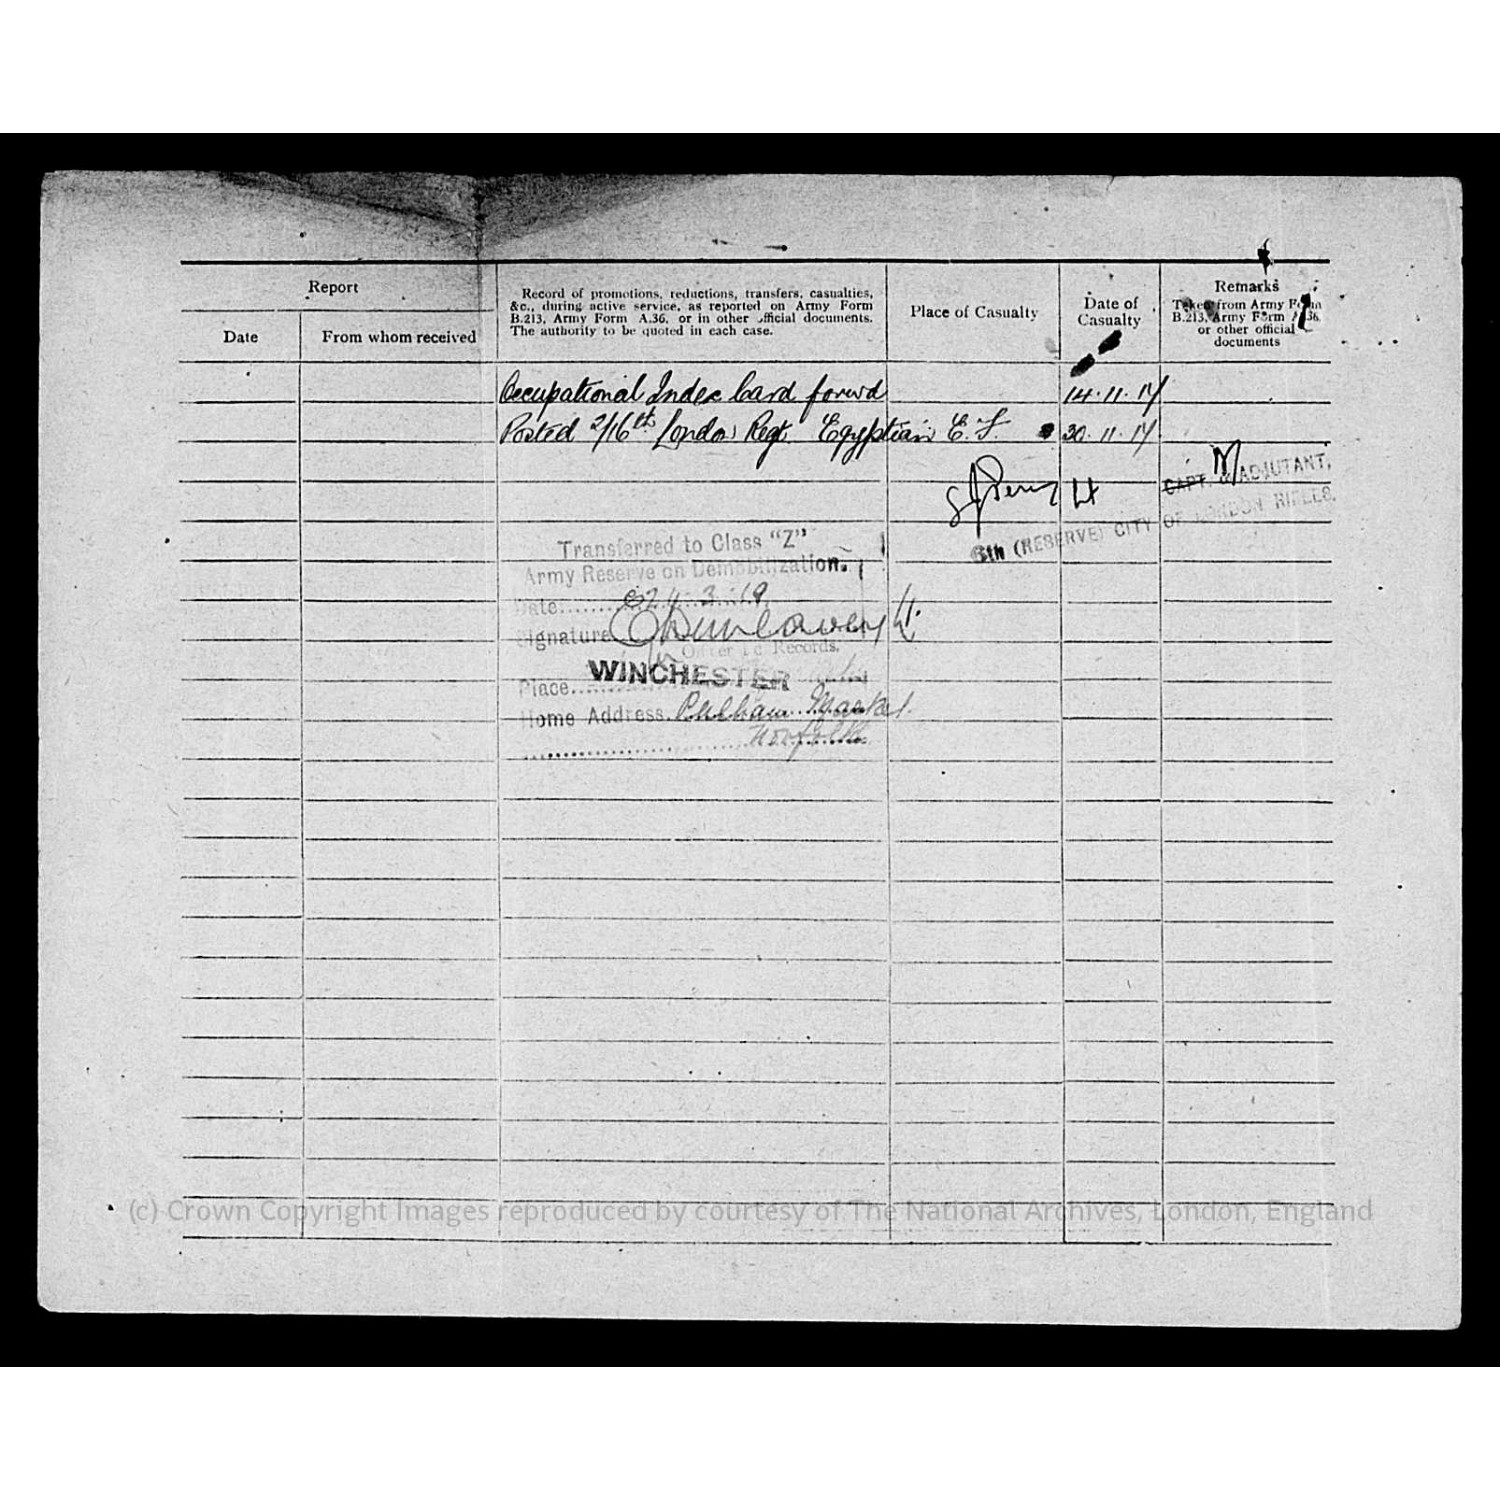 Report
Date
From whom received
Record of promotions, reductions, transfers, casualties,
&c., during active service, as reported on Army Form
B.213, Army Form A.36, or in other official documents.
The authority to be quoted in each case.
Place of Casualty
Date of
Casualty
Remarks
Taken from Army Form
B.213, Army Form A.36,
or other official
documents
Occupational Index Card forwd 14.11.17
Posted 2/16th London Regt Egyptian E.F. 30.11.17
Lt
CAPT. & ADJUTANT,
6th (RESERVE) CITY OF LONDON RIFLES.
Transferred to Class "Z"
Army Reserve on Demobilization.
Date 3.19
Signature Lt.
Officer i/c Records.
Place WINCHESTER
Home Address Pulham Market
Norfolk
(c) Crown Copyright Images reproduced by courtesy of The National Archives, London, England